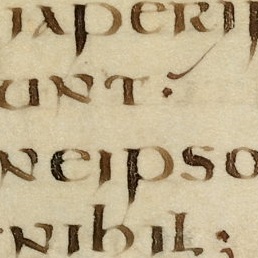 aperi
unt:
neipso
nibil: